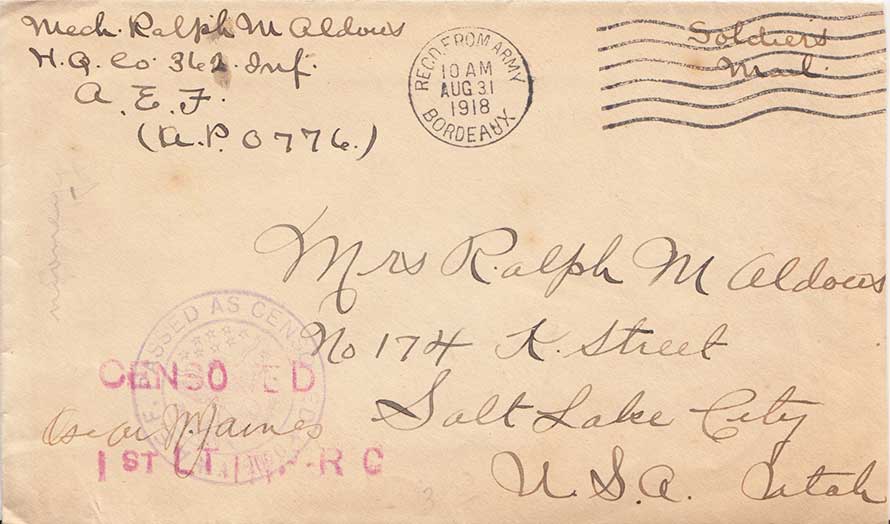 Mech. Ralph M Aldous
H.Q. Co. 362 Inf.
A. E. F.
(A.P. O 776.)
REC'D. FROM ARMY
10 AM
AUG 31
1918
BORDEAUX
Soldiers
Mail
Mrs Ralph M Aldous
No 174 K. Street
Salt Lake City
U. S. A. Utah
PASSED AS CENSORED
CENSO ED
Oscar
1ST LT INF-R C